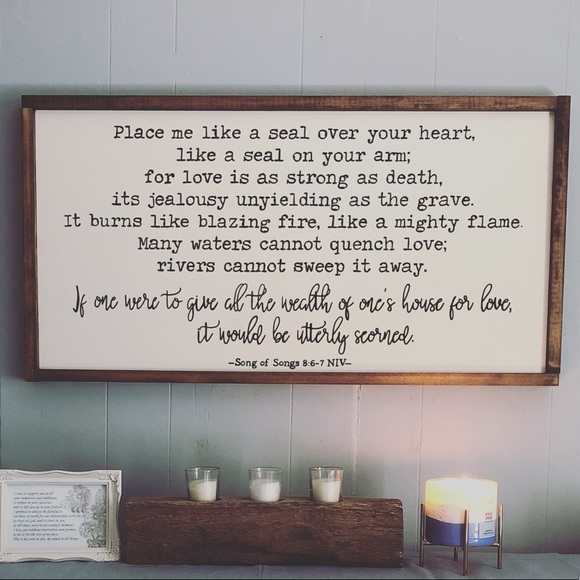 Place me like a seal over your heart,
like a seal on your arm;
for love is as strong as death,
its jealousy unyielding as the grave.
It burns like blazing fire, like a mighty flame.
Many waters cannot quench love;
rivers cannot sweep it away.
If one were to give all the wealth of one's house for love,
it would be utterly scorned.
–Song of Songs 8:6-7 NIV–